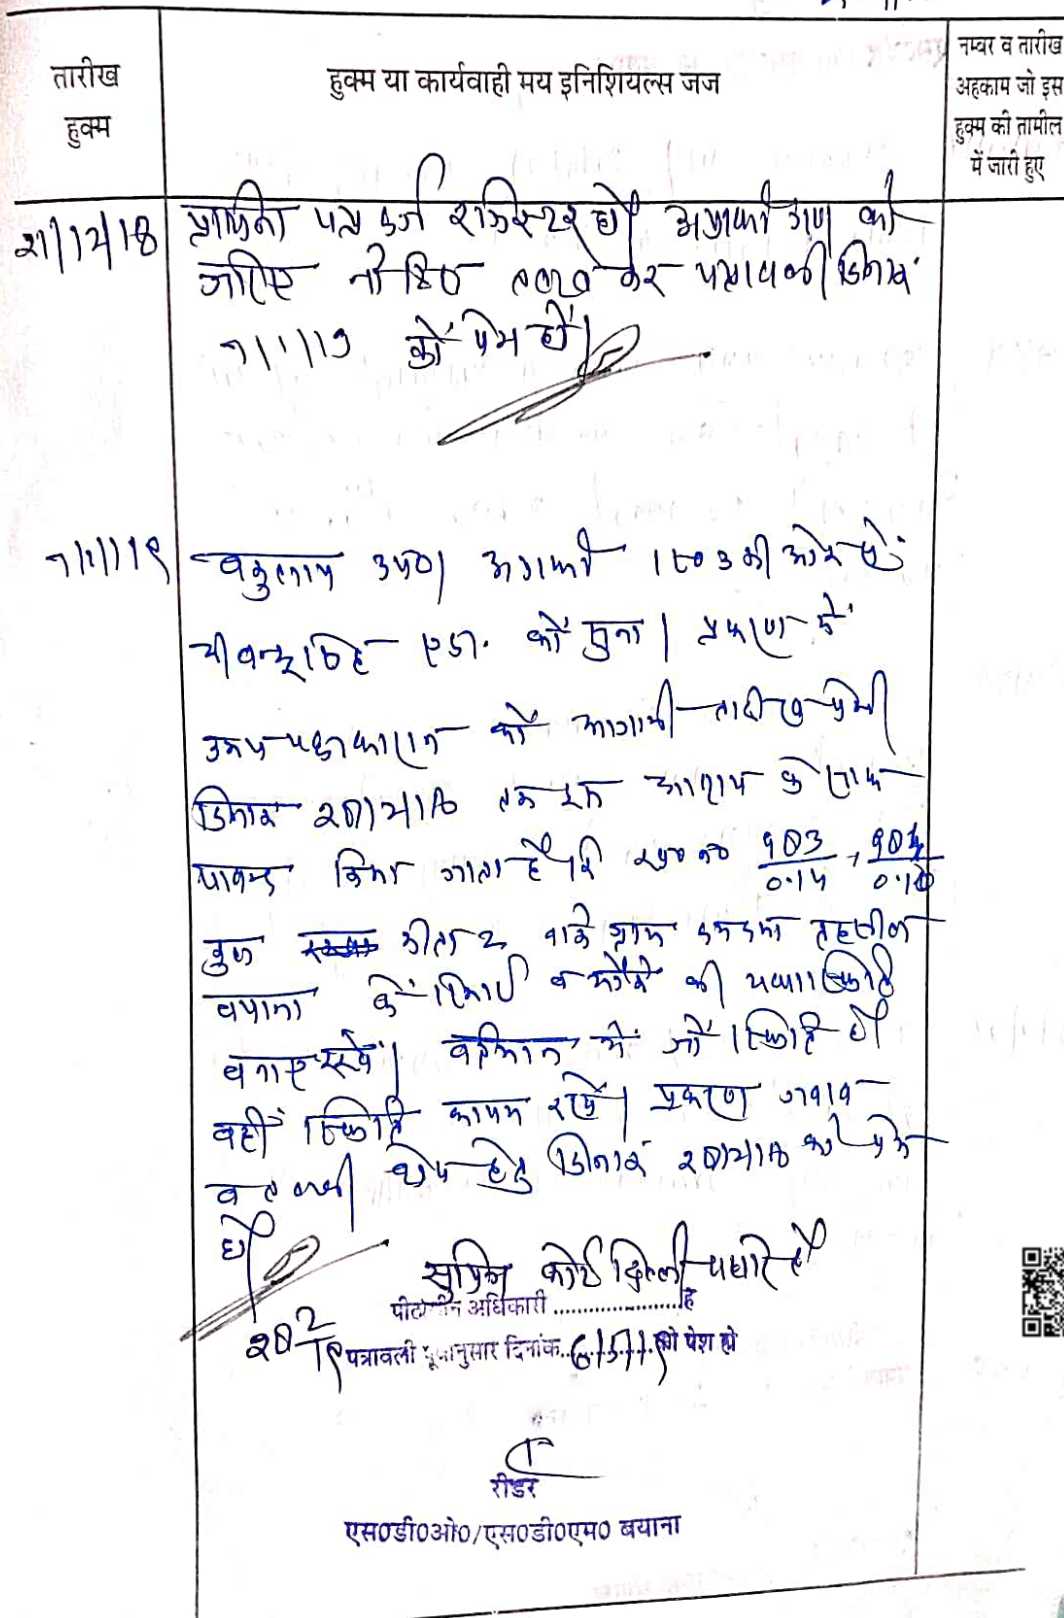 तारीख
हुक्म
हुक्म या कार्यवाही मय इनिशियल्स जज
नम्बर व तारीख
अहकाम जो इस
हुक्म की तामील
में जारी हुए
21/12/18 प्रार्थना पत्र दर्ज रजिस्टर हो। अप्रार्थी गण को
जरिए नोटिस तलब कर पत्रावली दिनांक
7/1/19 को पेश हो।
7/1/19 वकुलाय उप0। अप्रार्थी 1 की ओर से
सिंह एड. को सुना। प्रकरण में
उभय पक्षकारान को आगामी तारीख पेशी
दिनांक तक इस आशय के साथ
पाबन्द किया जाता है कि ख0 न0 903/0.14, 904/0.10
कुल कीता 2 वाके ग्राम तहसील
बयाना के रिकार्ड व मौके की यथास्थिति
बनाए रखें। वर्तमान में जो स्थिति है
वही स्थिति कायम रखें। प्रकरण जवाब
व तलबी शेष हेतु दिनांक को पेश
हो।
सुप्रिम कोर्ट दिल्ली पधारे है
पीठासीन अधिकारी ..................... है
पत्रावली पूर्वानुसार दिनांक..6/5/19..को पेश हो
रीडर
एस0डी0ओ0/एस0डी0एम0 बयाना